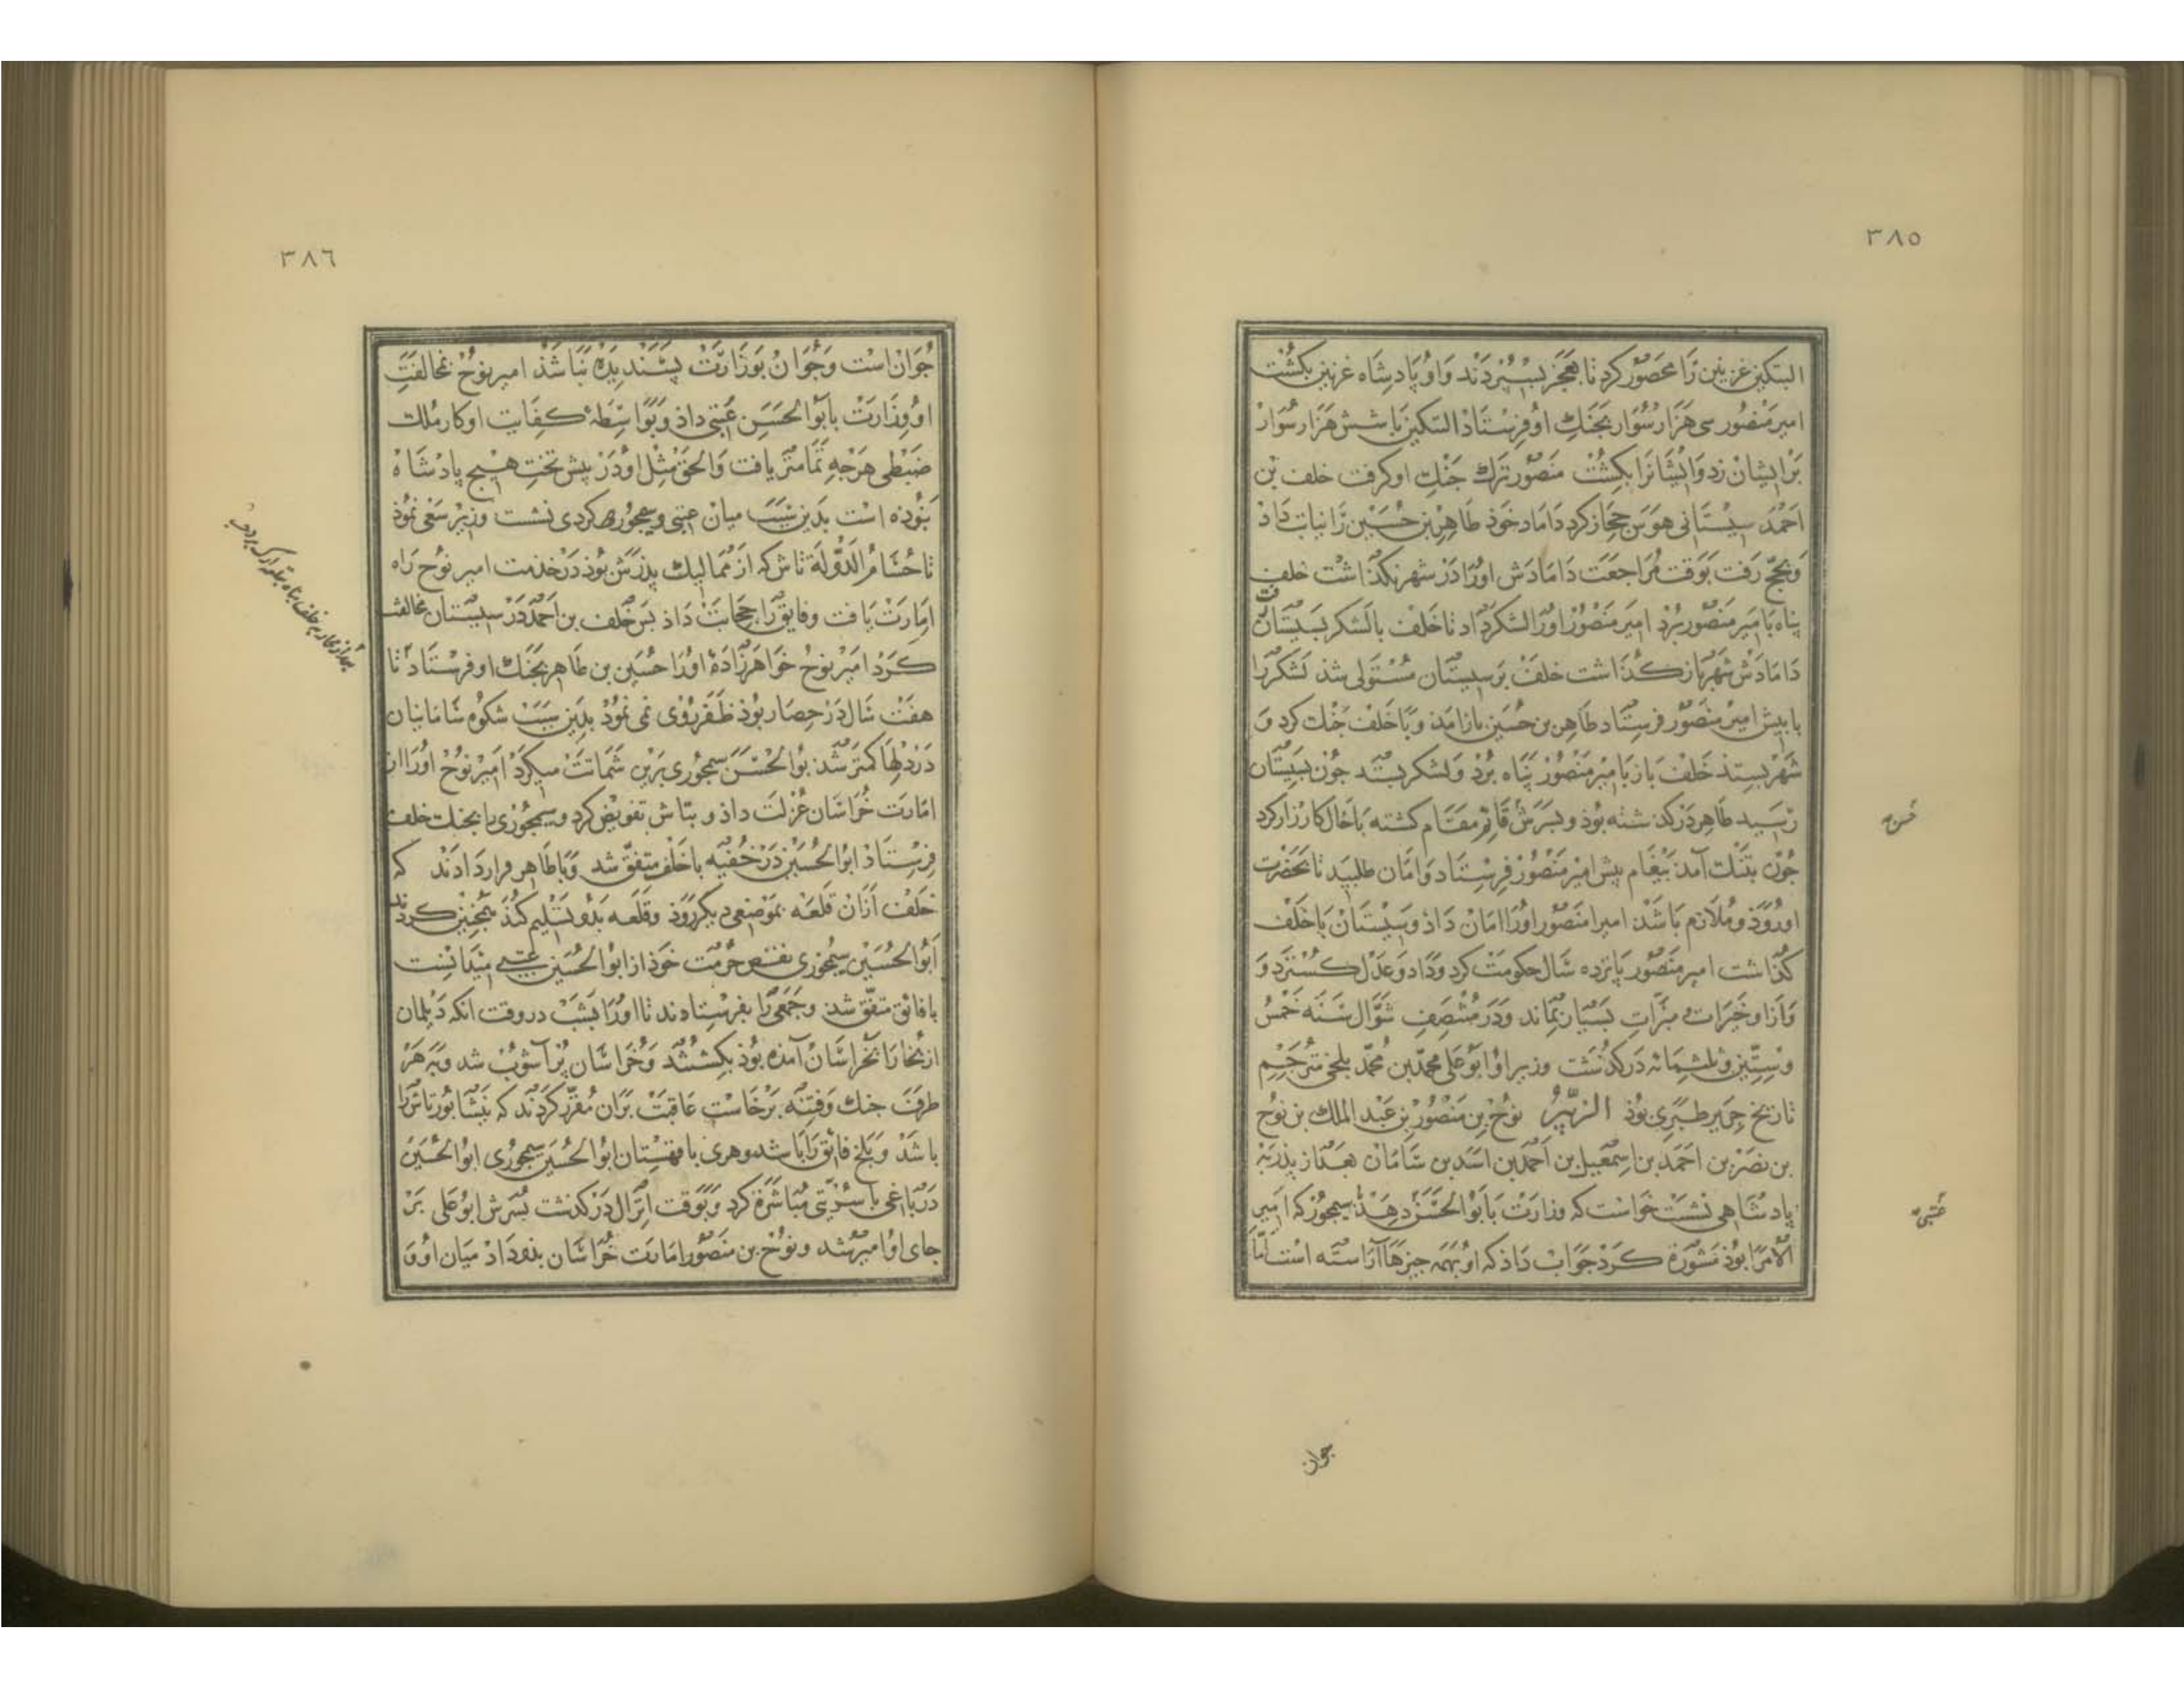 ٣٨٥
البتکین غزنین را محصور کرد تا بعجز بسپردند و او پادشاه غزنین بکشت
امیر منصور سی هزار سوار بجنك او فرستاد البتکین با شش هزار سوار
بر ایشان زد و ایشانرا بکشت منصور ترك جنك او کرفت خلف بن
احمد سیستانی هوس حجاز کرد داماد خوذ طاهر بن حسین را نیابت داذ
و بحج رفت بوقت مراجعت دامادش اورا در شهر نکذاشت خلف
پناه با امیر منصور برد امیر منصور اورا لشکر داد تا خلف با لشکر بسیستان رفت
دامادش شهر باز کذاشت خلف بر سیستان مستولی شد لشکر را
با پیش امیر منصور فرستاد طاهر بن حسین باز آمد و با خلف جنك کرد و
شهر بستد خلف باز با امیر منصور پناه برد و لشکر بستد جون بسیستان
رسید طاهر درکذشته بوذ و پسرش قایم مقام کشته با خال کارزار کرد
جون بتنك آمد پیغام پیش امیر منصور فرستاد و امان طلبید تا بحضرت
او رود و ملازم باشد امیر منصور اورا امان داذ و سیستان با خلف
کذاشت امیر منصور پانزده سال حکومت کرد و داد و عدل کسترد و
و ازو خیرات و مبرات بسیار بماند و در منتصف شوال سنه خمس
و ستین و ثلثمائه درکذشت وزیر او ابو علی محمد بن محمد بلخی مترجم
تاریخ جریر طبری بوذ نوح بن منصور بن عبد الملك بن نوح
بن نصر بن احمد بن اسمعیل بن احمد بن اسد بن سامان بعد از پذر به
پادشاهی نشست خواست که وزارت با بو الحسن دهد سیمجور که امیر
الامرا بوذ مشورة کرد جواب داذ که او بهمه جیزها آراسته است اما
عتبی
جوان
٣٨٦
جوان است و جوان بوزارت پسندیده نباشذ امیر نوح مخالفت
او وزارت با ابو الحسن عتبی داذ و بواسطه کفایت او کار ملك
ضبطی هرجه تمامتر یافت والحق مثل او در پیش تخت هیج پادشاه
نبوده است بدین سبب میان عتبی و سیمجور کردی نشست وزیر سعی نموذ
تا حسام الدوله تاش که از ممالیك پذرش بوذ در خذمت امیر نوح راه
امارت یافت و فایق را حجابت داذ پس خلف بن احمد در سیستان مخالفت
کرد امیر نوح خواهرزاده اورا حسین بن طاهر بجنك او فرستاد تا
هفت سال در حصار بوذ ظفر روی نمی نمود بدین سبب شکوه سامانیان
در دلها کمتر شد بو الحسن سیمجوری برین شماتت میکرد امیر نوح اورا از
امارت خراسان عزلت داذ و بتاش تفویض کرد و سیمجوری را بجنك خلف
فرستاذ ابو الحسین در خفیه با خلف متفق شد و با طاهر قرار دادند که
خلف از آن قلعه بموضعی دیکر روذ و قلعه بدو تسلیم کند همجنین کردند
ابو الحسین سیمجوری نقص حرمت خوذ از ابو الحسین عتبی میدانست
با فائق متفق شد و جمعی را بفرستادند تا اورا بشب در وقت آنکه دیلمان
از بخارا بخراسان آمذه بوذ بکشتند و خراسان پر آشوب شد و به هر
طرف جنك و فتنه برخاست عاقبت بر آن مقرر کردند که نیشابور تاش را
باشد و بلخ فائق را باشد و هری با قهستان ابو الحسین سیمجوری ابو الحسین
در باغی با سریتی مباشرة کرد و بوقت انزال درکذشت پسرش ابو علی بر
جای او امیر شد و نوح بن منصور امارت خراسان بذو داذ میان او و